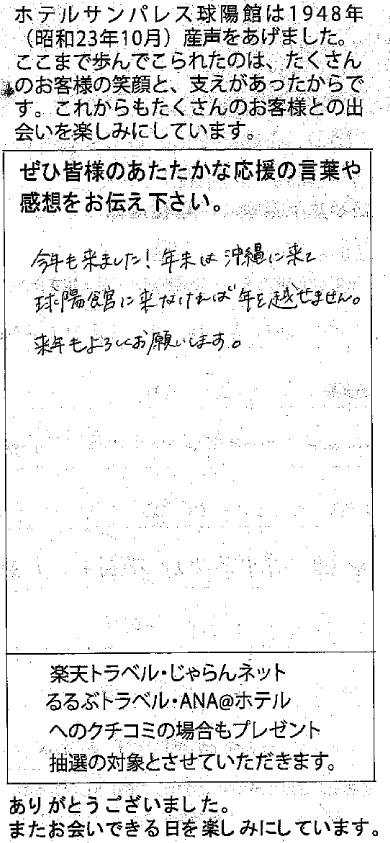 ホテルサンパレス球陽館は1948年
（昭和23年10月）産声をあげました。
ここまで歩んでこられたのは、たくさん
のお客様の笑顔と、支えがあったからで
す。これからもたくさんのお客様との出
会いを楽しみにしています。
ぜひ皆様のあたたかな応援の言葉や
感想をお伝え下さい。
今年も来ました！年末は沖縄に来て
球陽館に来なければ年を越せません。
来年もよろしくお願いします。
楽天トラベル・じゃらんネット
るるぶトラベル・ANA@ホテル
へのクチコミの場合もプレゼント
抽選の対象とさせていただきます。
ありがとうございました。
またお会いできる日を楽しみにしています。